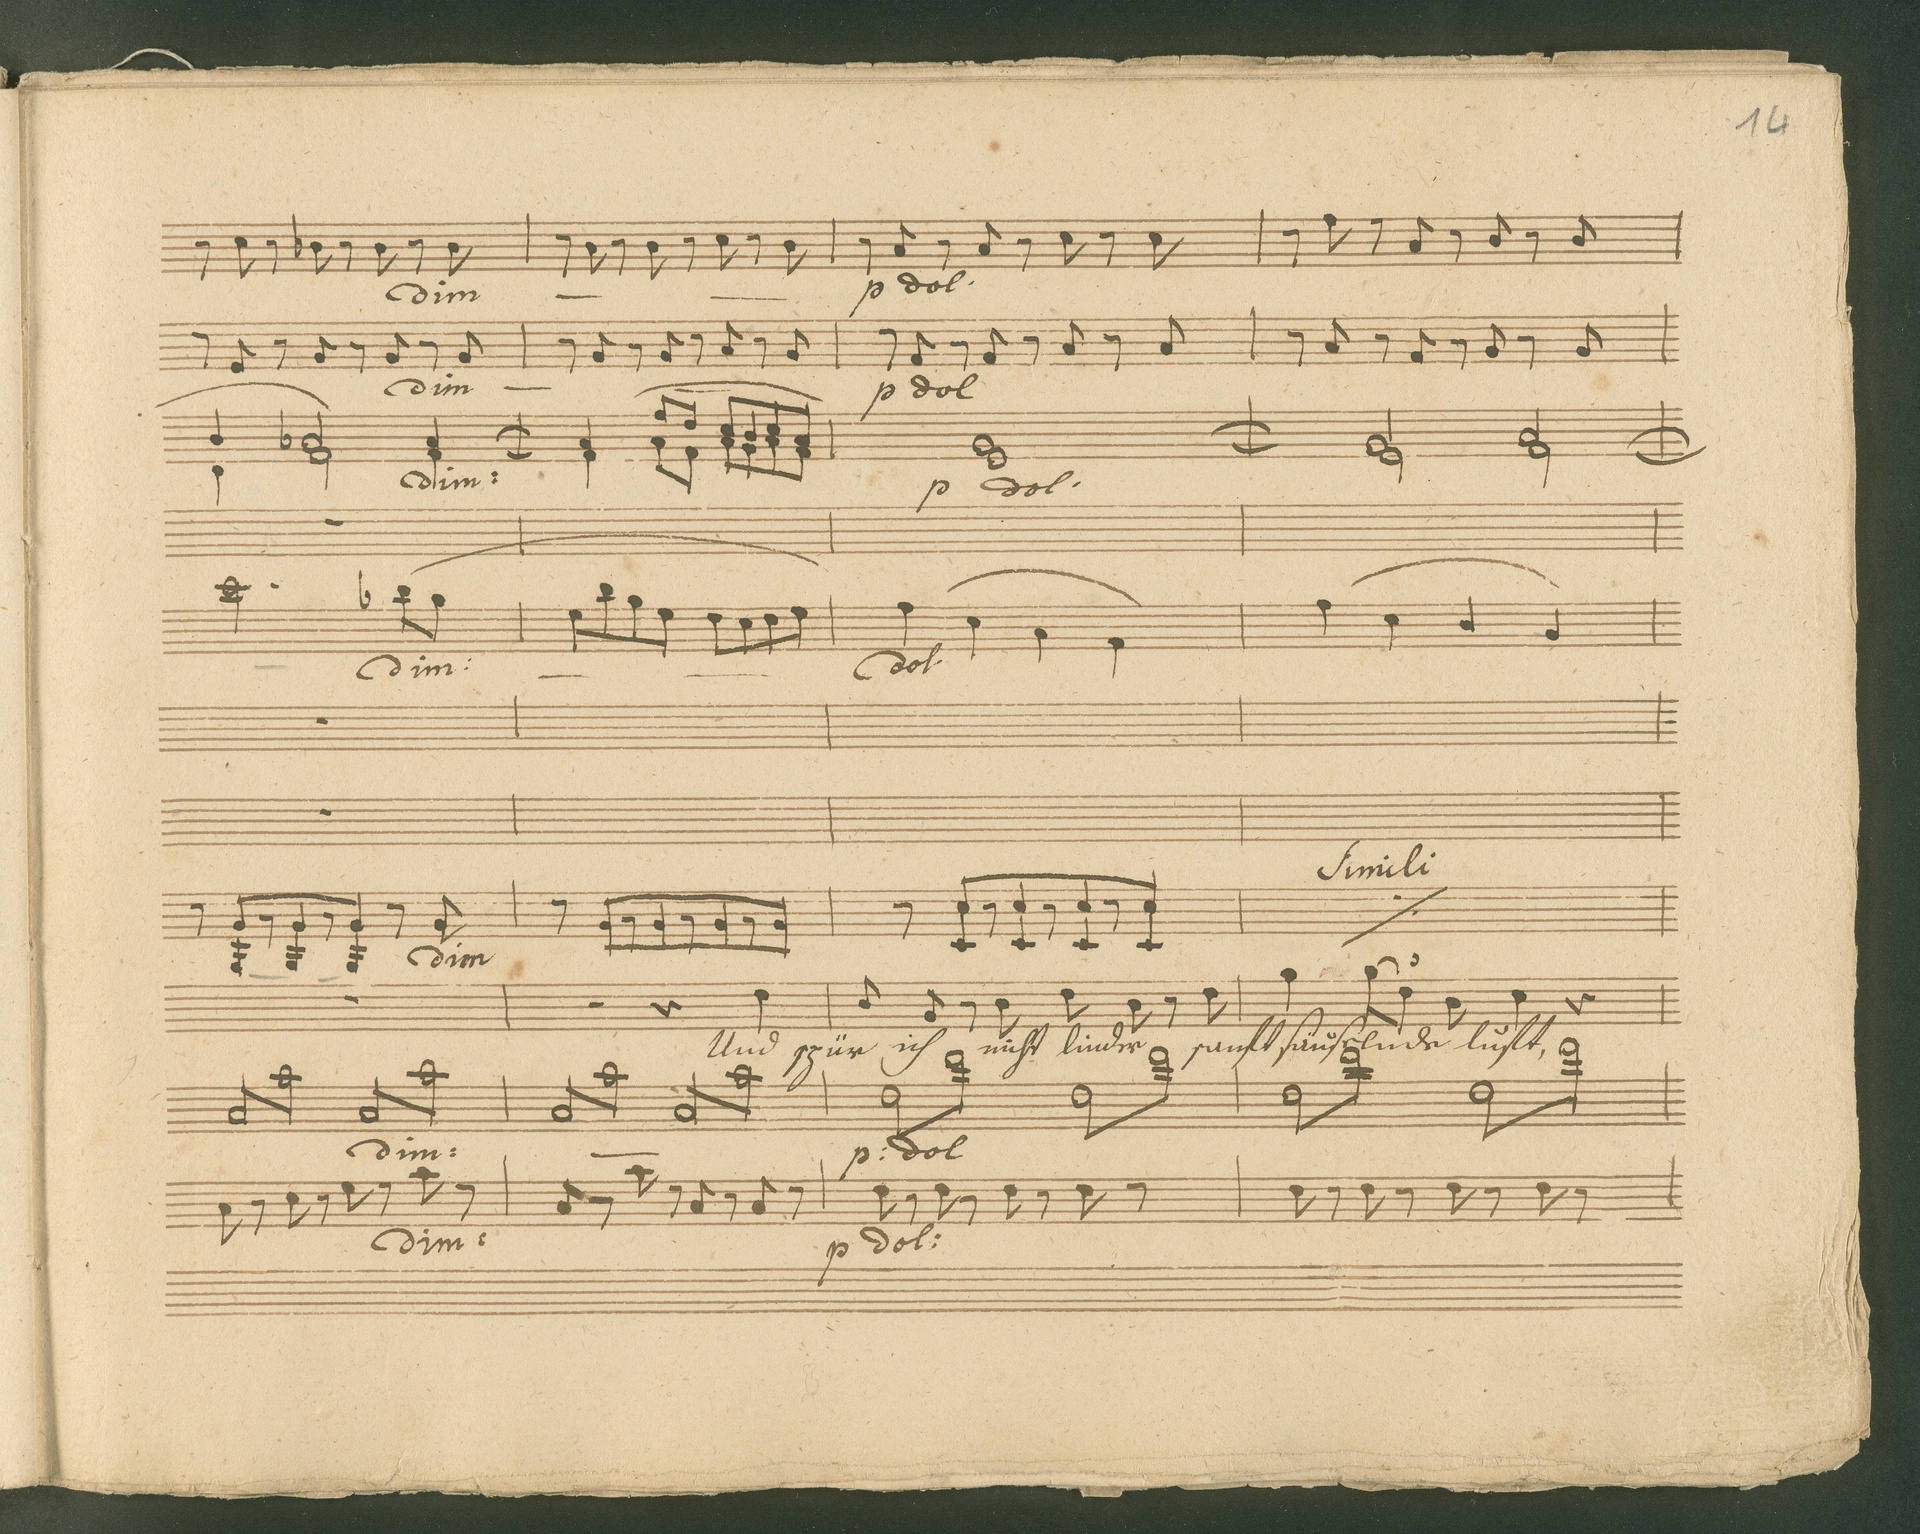 14
dim p dol.
dim p dol
dim: p dol.
dim: dol.
Simili
dim
Und spür ich nicht linde, sanft säuselnde Luft,
dim: p: dol
dim: p dol: